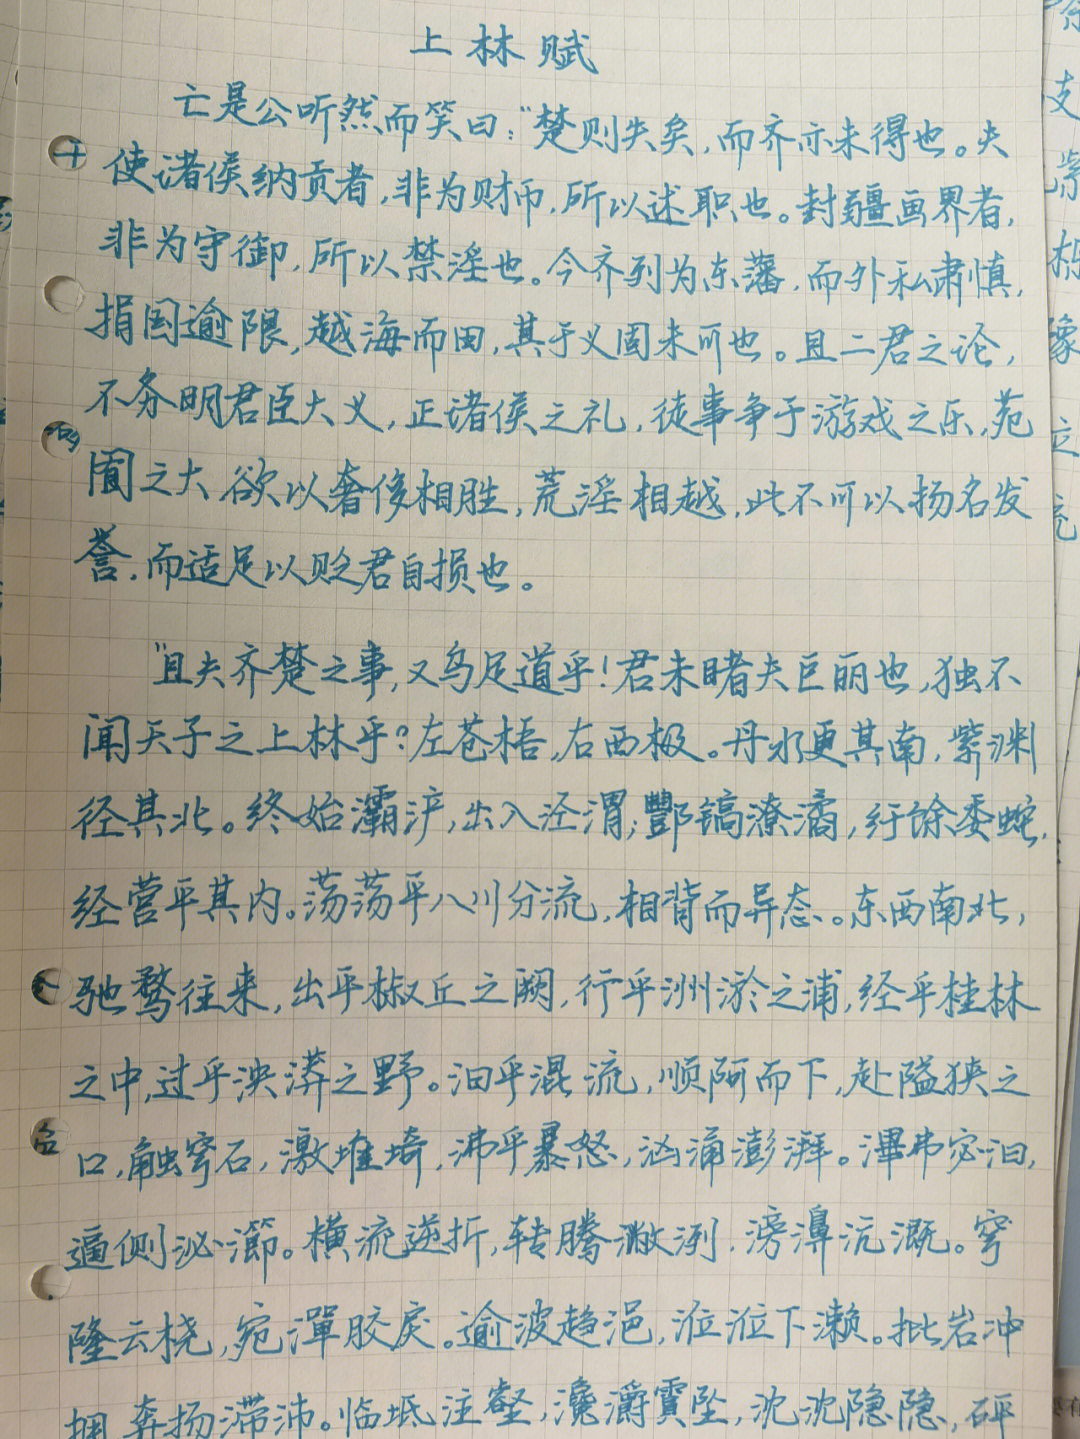 上林赋
亡是公听然而笑曰：“楚则失矣，而齐亦未得也。夫
使诸侯纳贡者，非为财币，所以述职也。封疆画界者，
非为守御，所以禁淫也。今齐列为东藩，而外私肃慎，
捐国逾限，越海而田，其于义固未可也。且二君之论，
不务明君臣大义，正诸侯之礼，徒事争于游戏之乐，苑
囿之大，欲以奢侈相胜，荒淫相越，此不可以扬名发
誉，而适足以贬君自损也。
“且夫齐楚之事，又乌足道乎！君未睹夫巨丽也，独不
闻天子之上林乎？左苍梧，右西极。丹水更其南，紫渊
径其北。终始灞浐，出入泾渭；酆镐潦潏，纡馀委蛇，
经营乎其内。荡荡乎八川分流，相背而异态。东西南北，
驰骛往来，出乎椒丘之阙，行乎洲淤之浦，经乎桂林
之中，过乎泱漭之野。汩乎混流，顺阿而下，赴隘狭之
口，触穹石，激堆埼，沸乎暴怒，汹涌澎湃。滭弗宓汩，
逼侧泌㴙。横流逆折，转腾潎洌，滂濞沆溉。穹
隆云桡，宛潬胶戾。逾波趋浥，涖涖下濑。批岩冲
拥，奔扬滞沛。临坻注壑，瀺灂霣坠，沈沈隐隐，砰
支
紫
豫
立